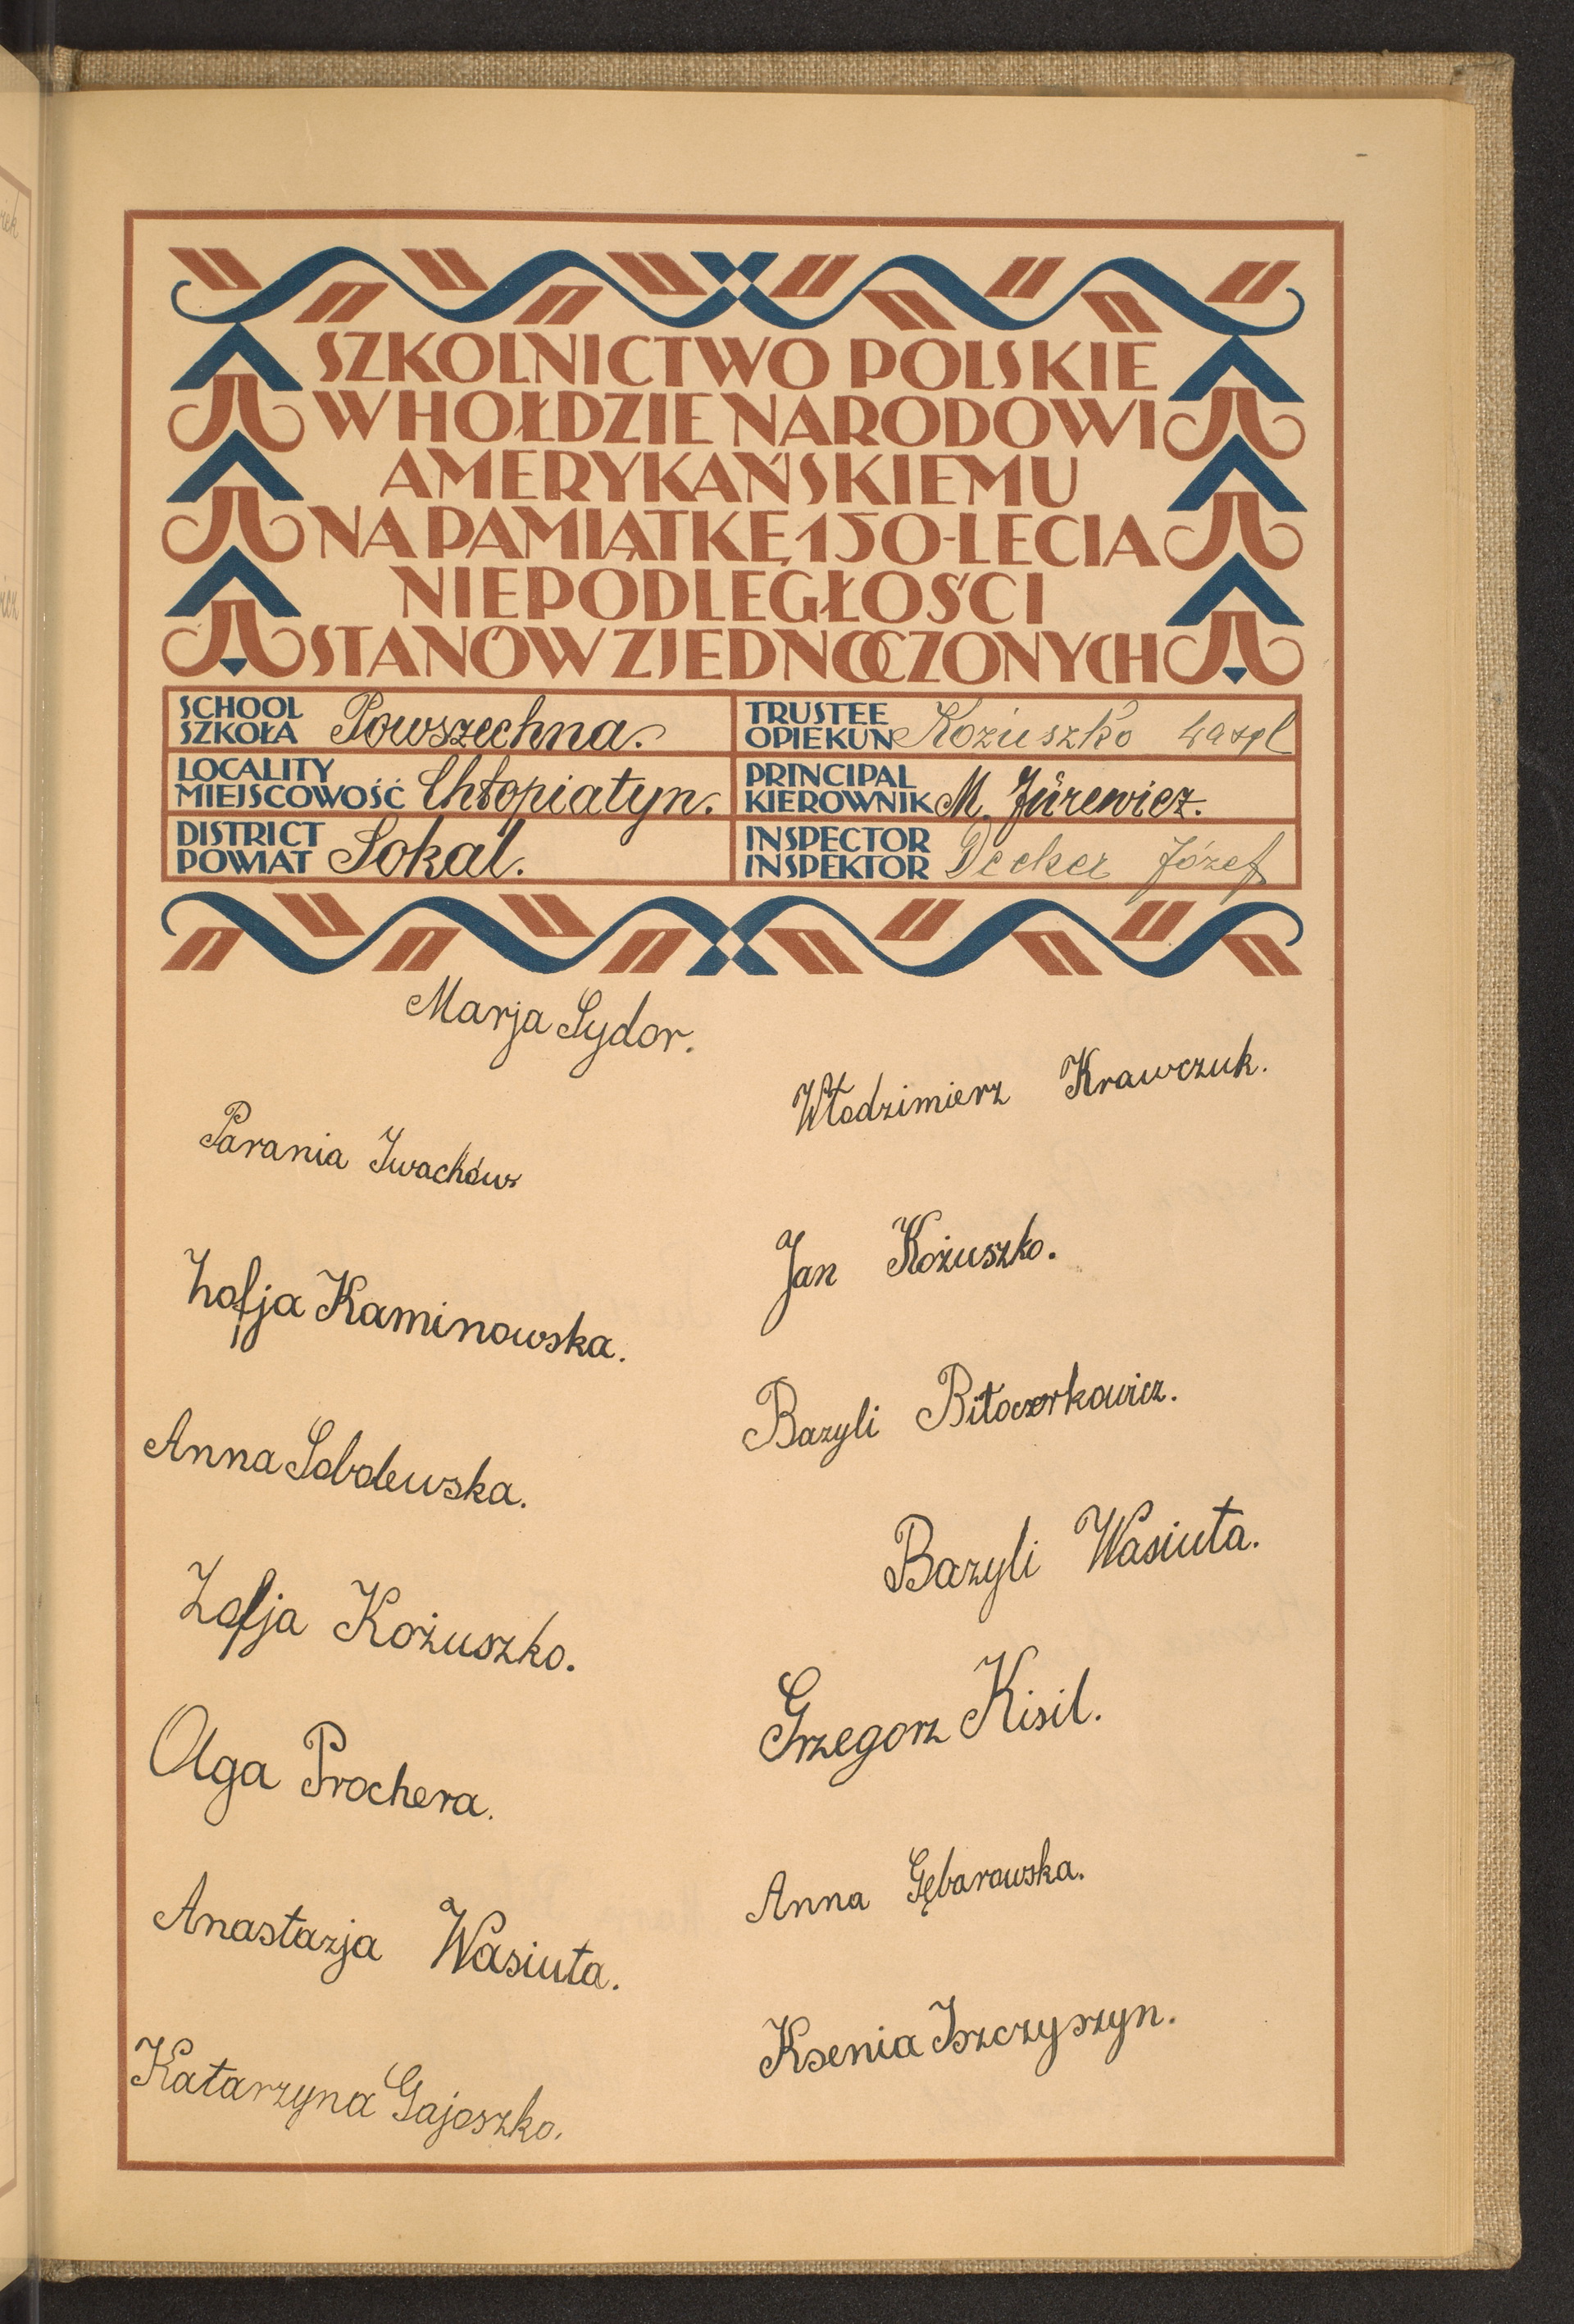 SZKOLNICTWO POLSKIE
W HOŁDZIE NARODOWI
AMERYKAŃSKIEMU
NA PAMIĄTKĘ 150-LECIA
NIEPODLEGŁOŚCI
STANÓW ZJEDNOCZONYCH
SCHOOL
SZKOŁA Powszechna.
LOCALITY
MIEJSCOWOŚĆ Chłopiatyn.
DISTRICT
POWIAT Sokal.
TRUSTEE
OPIEKUN Kożuszko
PRINCIPAL
KIEROWNIK M. Jurewicz.
INSPECTOR
INSPEKTOR Decker Józef
Marja Sydor.
Parania Iwachów
Zofja Kaminowska.
Anna Sobolewska.
Zofja Kożuszko.
Olga Prochera.
Anastazja Wasiuta.
Katarzyna Gajoszko.
Włodzimierz Krawczuk.
Jan Kożuszko.
Bazyli Biłoczerkowicz.
Bazyli Wasiuta.
Grzegorz Kisil.
Anna Gębarowska.
Ksenia Iszczyszyn.